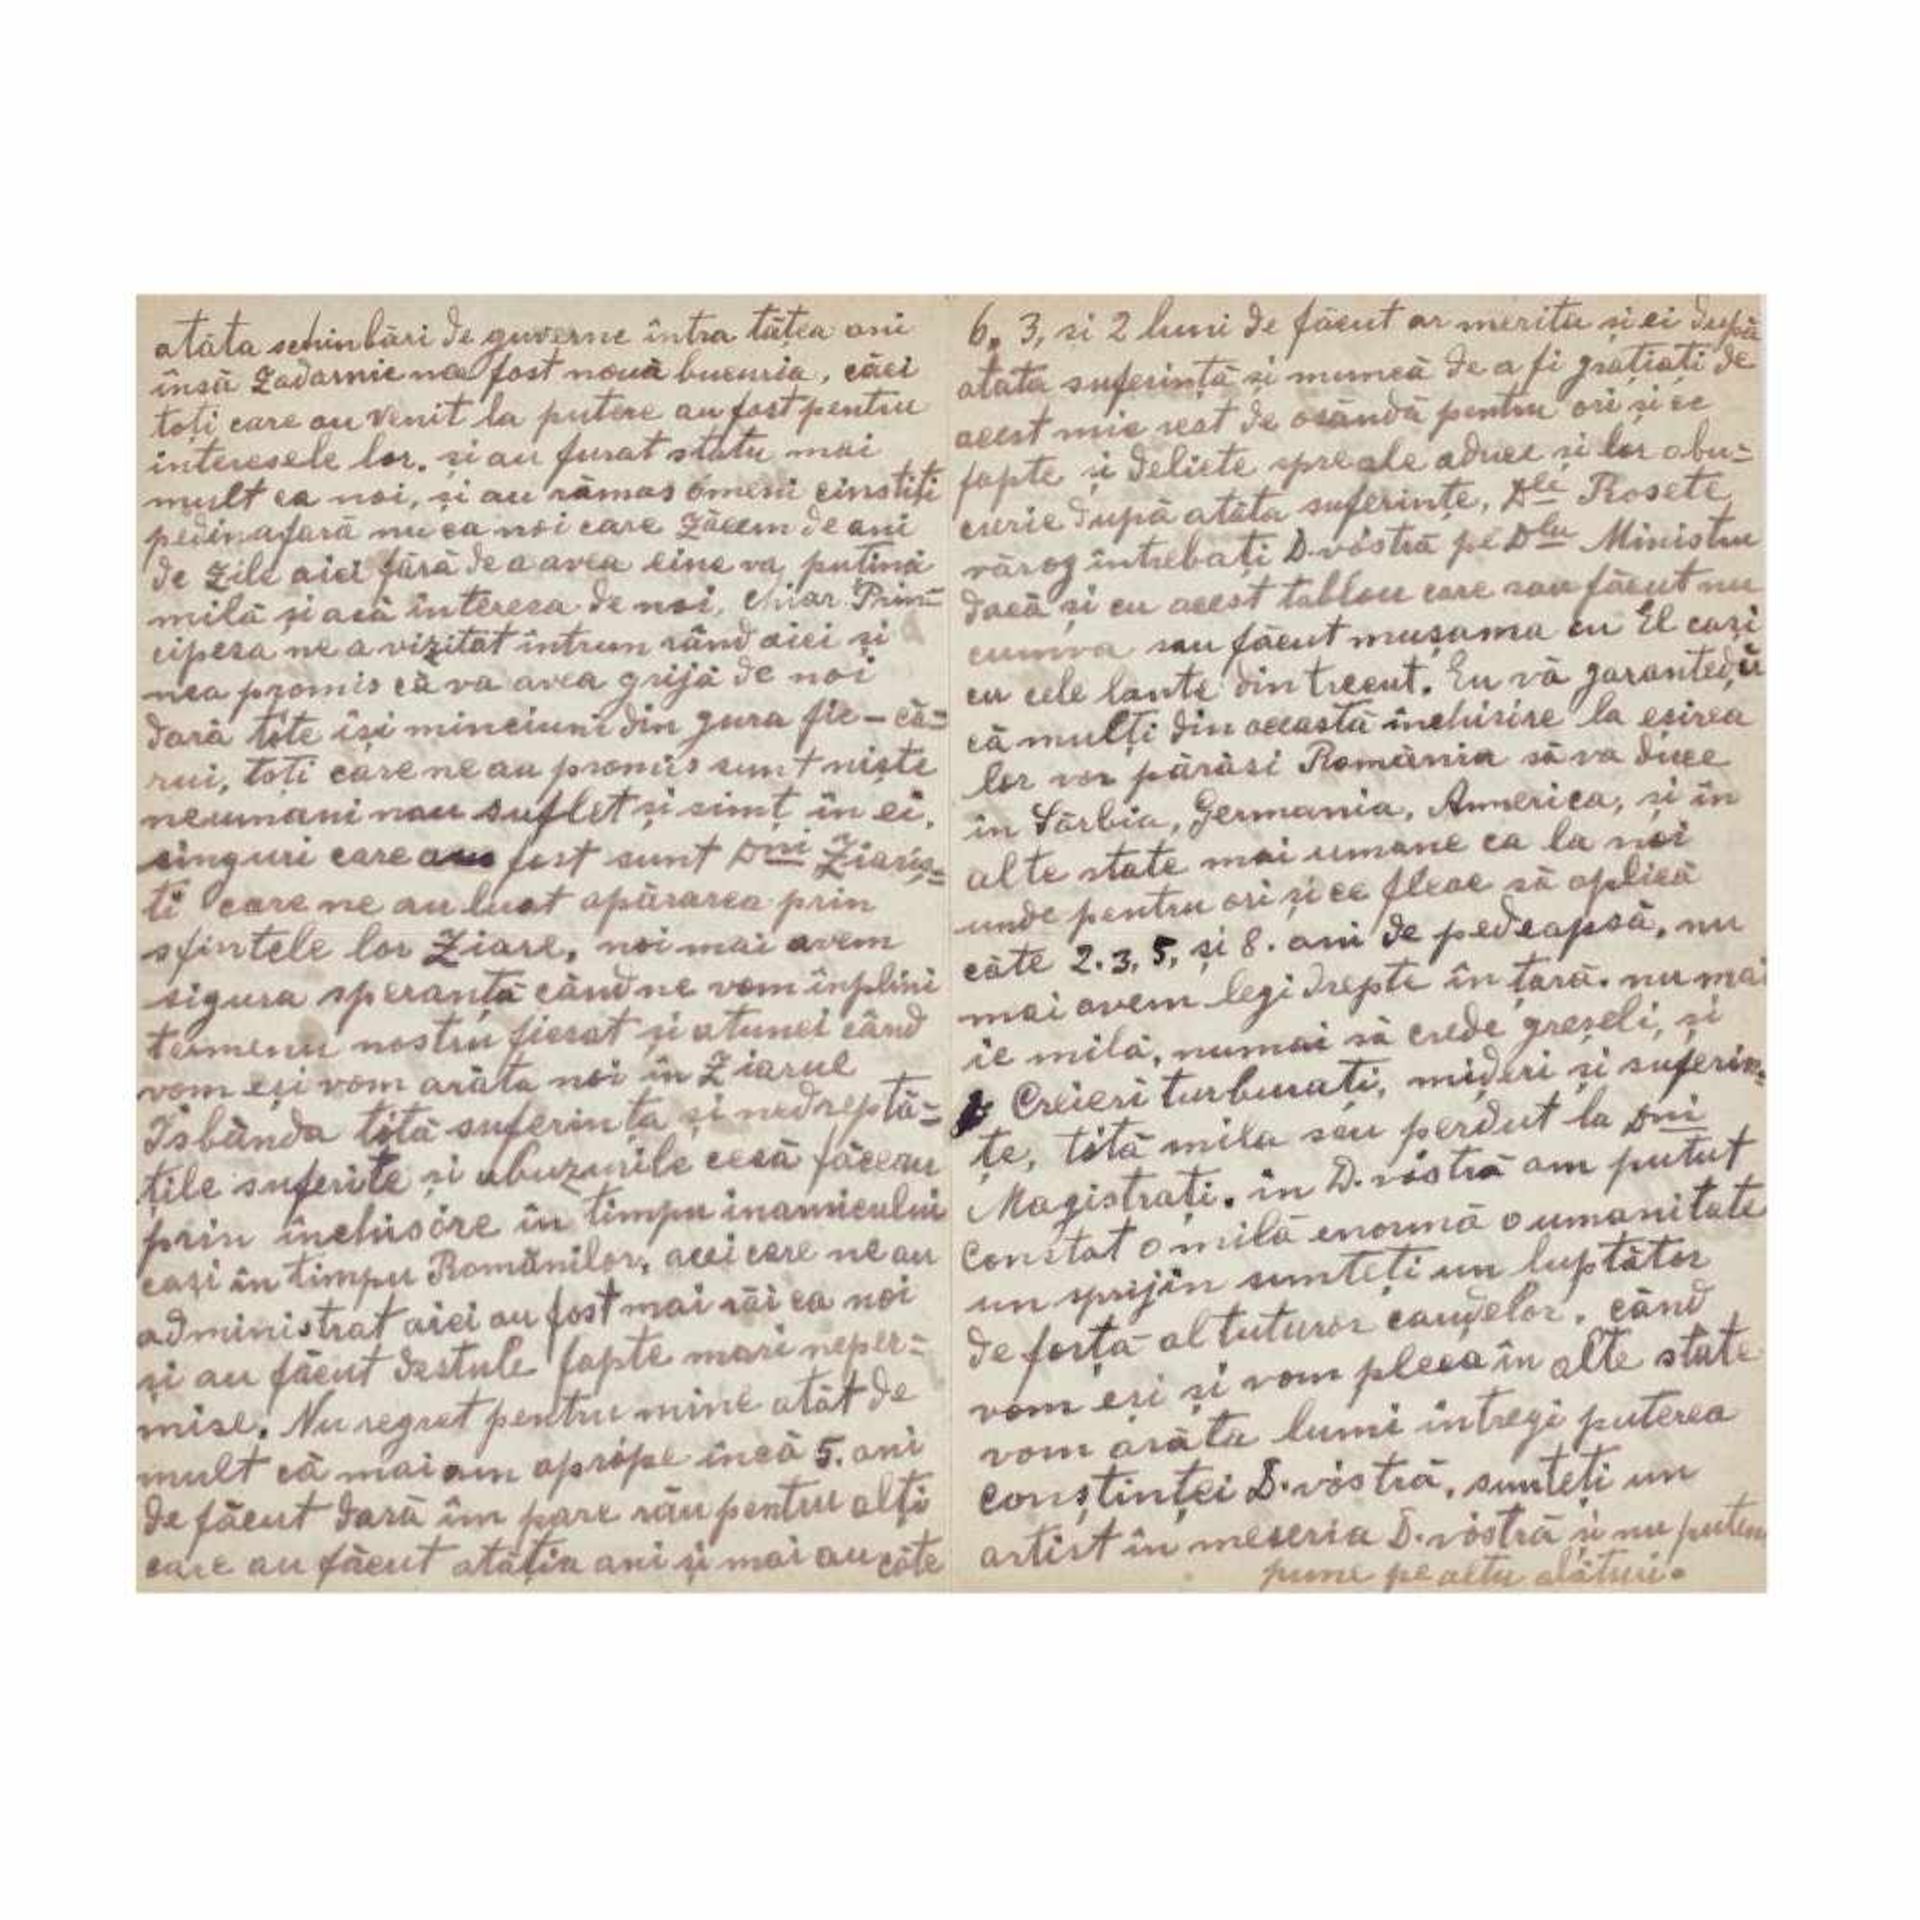 atâta schinbări de guverne întra tâtea ani
însă Zadarnic na fost nouă bucuria, căci
toți care au venit la putere au fost pentru
interesele lor. și au furat statu mai
mult ca noi, și au rămas ómeni cinstiți
pedinafară nu ca noi care Zăcem de ani
de Zile aici fără de a avea cine va putină
milă și asă interesa de noi, chiar Prin=
cipesa ne a vizitat intrun rând aici și
nea promis că va avea grijă de noi
dară tóte isi minciuni din gura fie-că=
rui, toți care ne au promis sunt niște
neumani nau suflet și simț în ei,
singuri care au fost sunt Dnii Ziariș=
ti care ne au luat apărarea prin
sfintele lor Ziare, noi mai avem
sigura speranță când ne vom înplini
termenu nostru fiecat și atunci când
vom eși vom arăta noi în Ziarul
Isbânda tótă suferința și nedreptă=
țile suferite și abuzurile cesă făceau
prin închisóre în timpu inamicului
cași în timpu Românilor, acei care ne au
administrat aici au fost mai răi ca noi
și au făcut destule fapte mari neper=
mise. Nu regret pentru mine atât de
mult că mai am aprópe încă 5. ani
de făcut dară îm pare rău pentru alți
care au făcut atâția ani și mai au câte
6, 3, si 2 luni de făcut ar merita și ei după
atata suferință și muncă de a fi grațiați de
acest mic rest de osândă pentru ori și ce
fapte și delicte spre ale aduce si lor abu=
curie după atâta suferințe, Dle Rosete
vărog întrebați D.vóstră pe Dlu Ministru
dacă și cu acest tablou care sau făcut nu
cumva sau făcut mușama cu El cași
cu cele lante din trecut. Eu vă garanted,
că mulți din această închisire la eșirea
lor vor părăsi România să va duce
in Sârbia, Germania, Ammerica, și în
alte state mai umane ca la noi
unde pentru ori și ce fleac să aplică
câte 2.3, 5, și 8. ani de pedeapsă, nu
mai avem legi drepte în țară. nu mai
ie milă, numai să crede greșeli, și
Creieri turburați, mizeri și suferin=
țe, tótă mila sau perdut la Dnii
Magistrați. in D.vóstră am putut
Constat o milă enormă o umanitate
un sprijin sunteți un luptător
de forță al tuturor cauzelor. când
vom eși și vom pleca în alte state
vom arăta lumi întregi puterea
conștinței D.vóstră, sunteți un
artist în meseria D.vóstră și nu putem
pune pe altu alături.